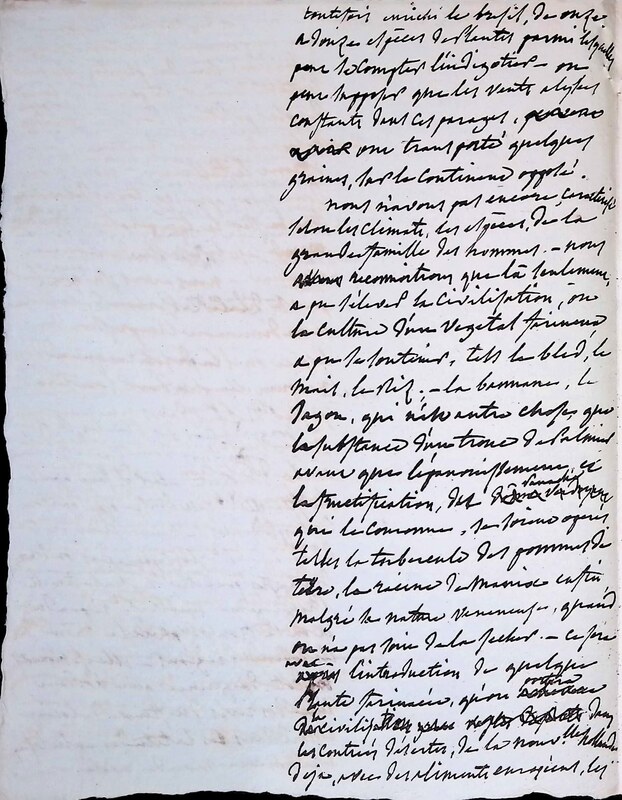 toutefois enrichi le brésil, de onze
a douze espèces de Plantes parmi lesquelles
peut se compter l'indigotier - on
peut supposer que les vents alysées
constants dans ces parages,
ont transporté quelques
graines, sur le continent opposé.
nous n'avons pas encore, caractérisé
selon les climats, les espèces, de la
grande famille des hommes. - nous
reconnoitrons que là seulement,
a pu s'élever la civilisation, où
la culture d'un vegetal farineux
a pu se soutenir, tels le bled, le
Maïs, le Riz, - la bannane, le
Sagou, qui n'est autre chose, que
la substance d'un tronc de Palmier
avant que l'épanouissement, et
la fructification, des
qui le couronne, se soient opérés
telles la tubercule des pommes de
terre, la racine de Manioc enfin
malgré sa nature veneneuse, quand
on n'a pas soin de la sécher. - ce sera
avec l'introduction de quelque
Plante farinacée, qu'on portera
la civilisation dans
les contrées désertes, de la nouv.lle hollande
déja, avec des alimens européens, les